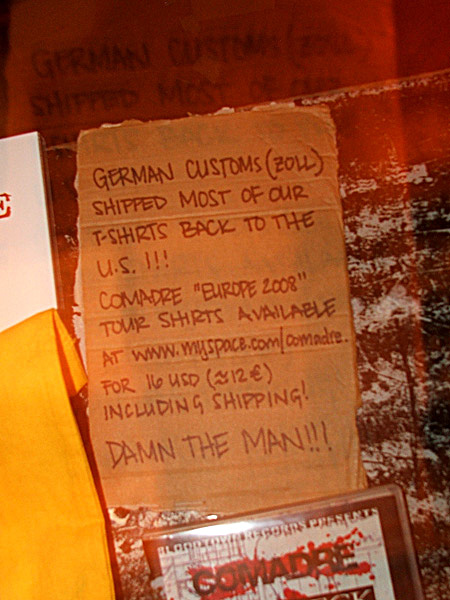 GERMAN CUSTOMS (ZOLL)
SHIPPED MOST OF OUR
T-SHIRTS BACK TO THE
U.S. !!!
COMADRE "EUROPE 2008"
TOUR SHIRTS AVAILABLE
AT www.myspace.com/comadre.
FOR 16 USD (≈12€)
INCLUDING SHIPPING!
DAMN THE MAN!!!
BLOODTOWN RECORDS PRESENTS
COMADRE